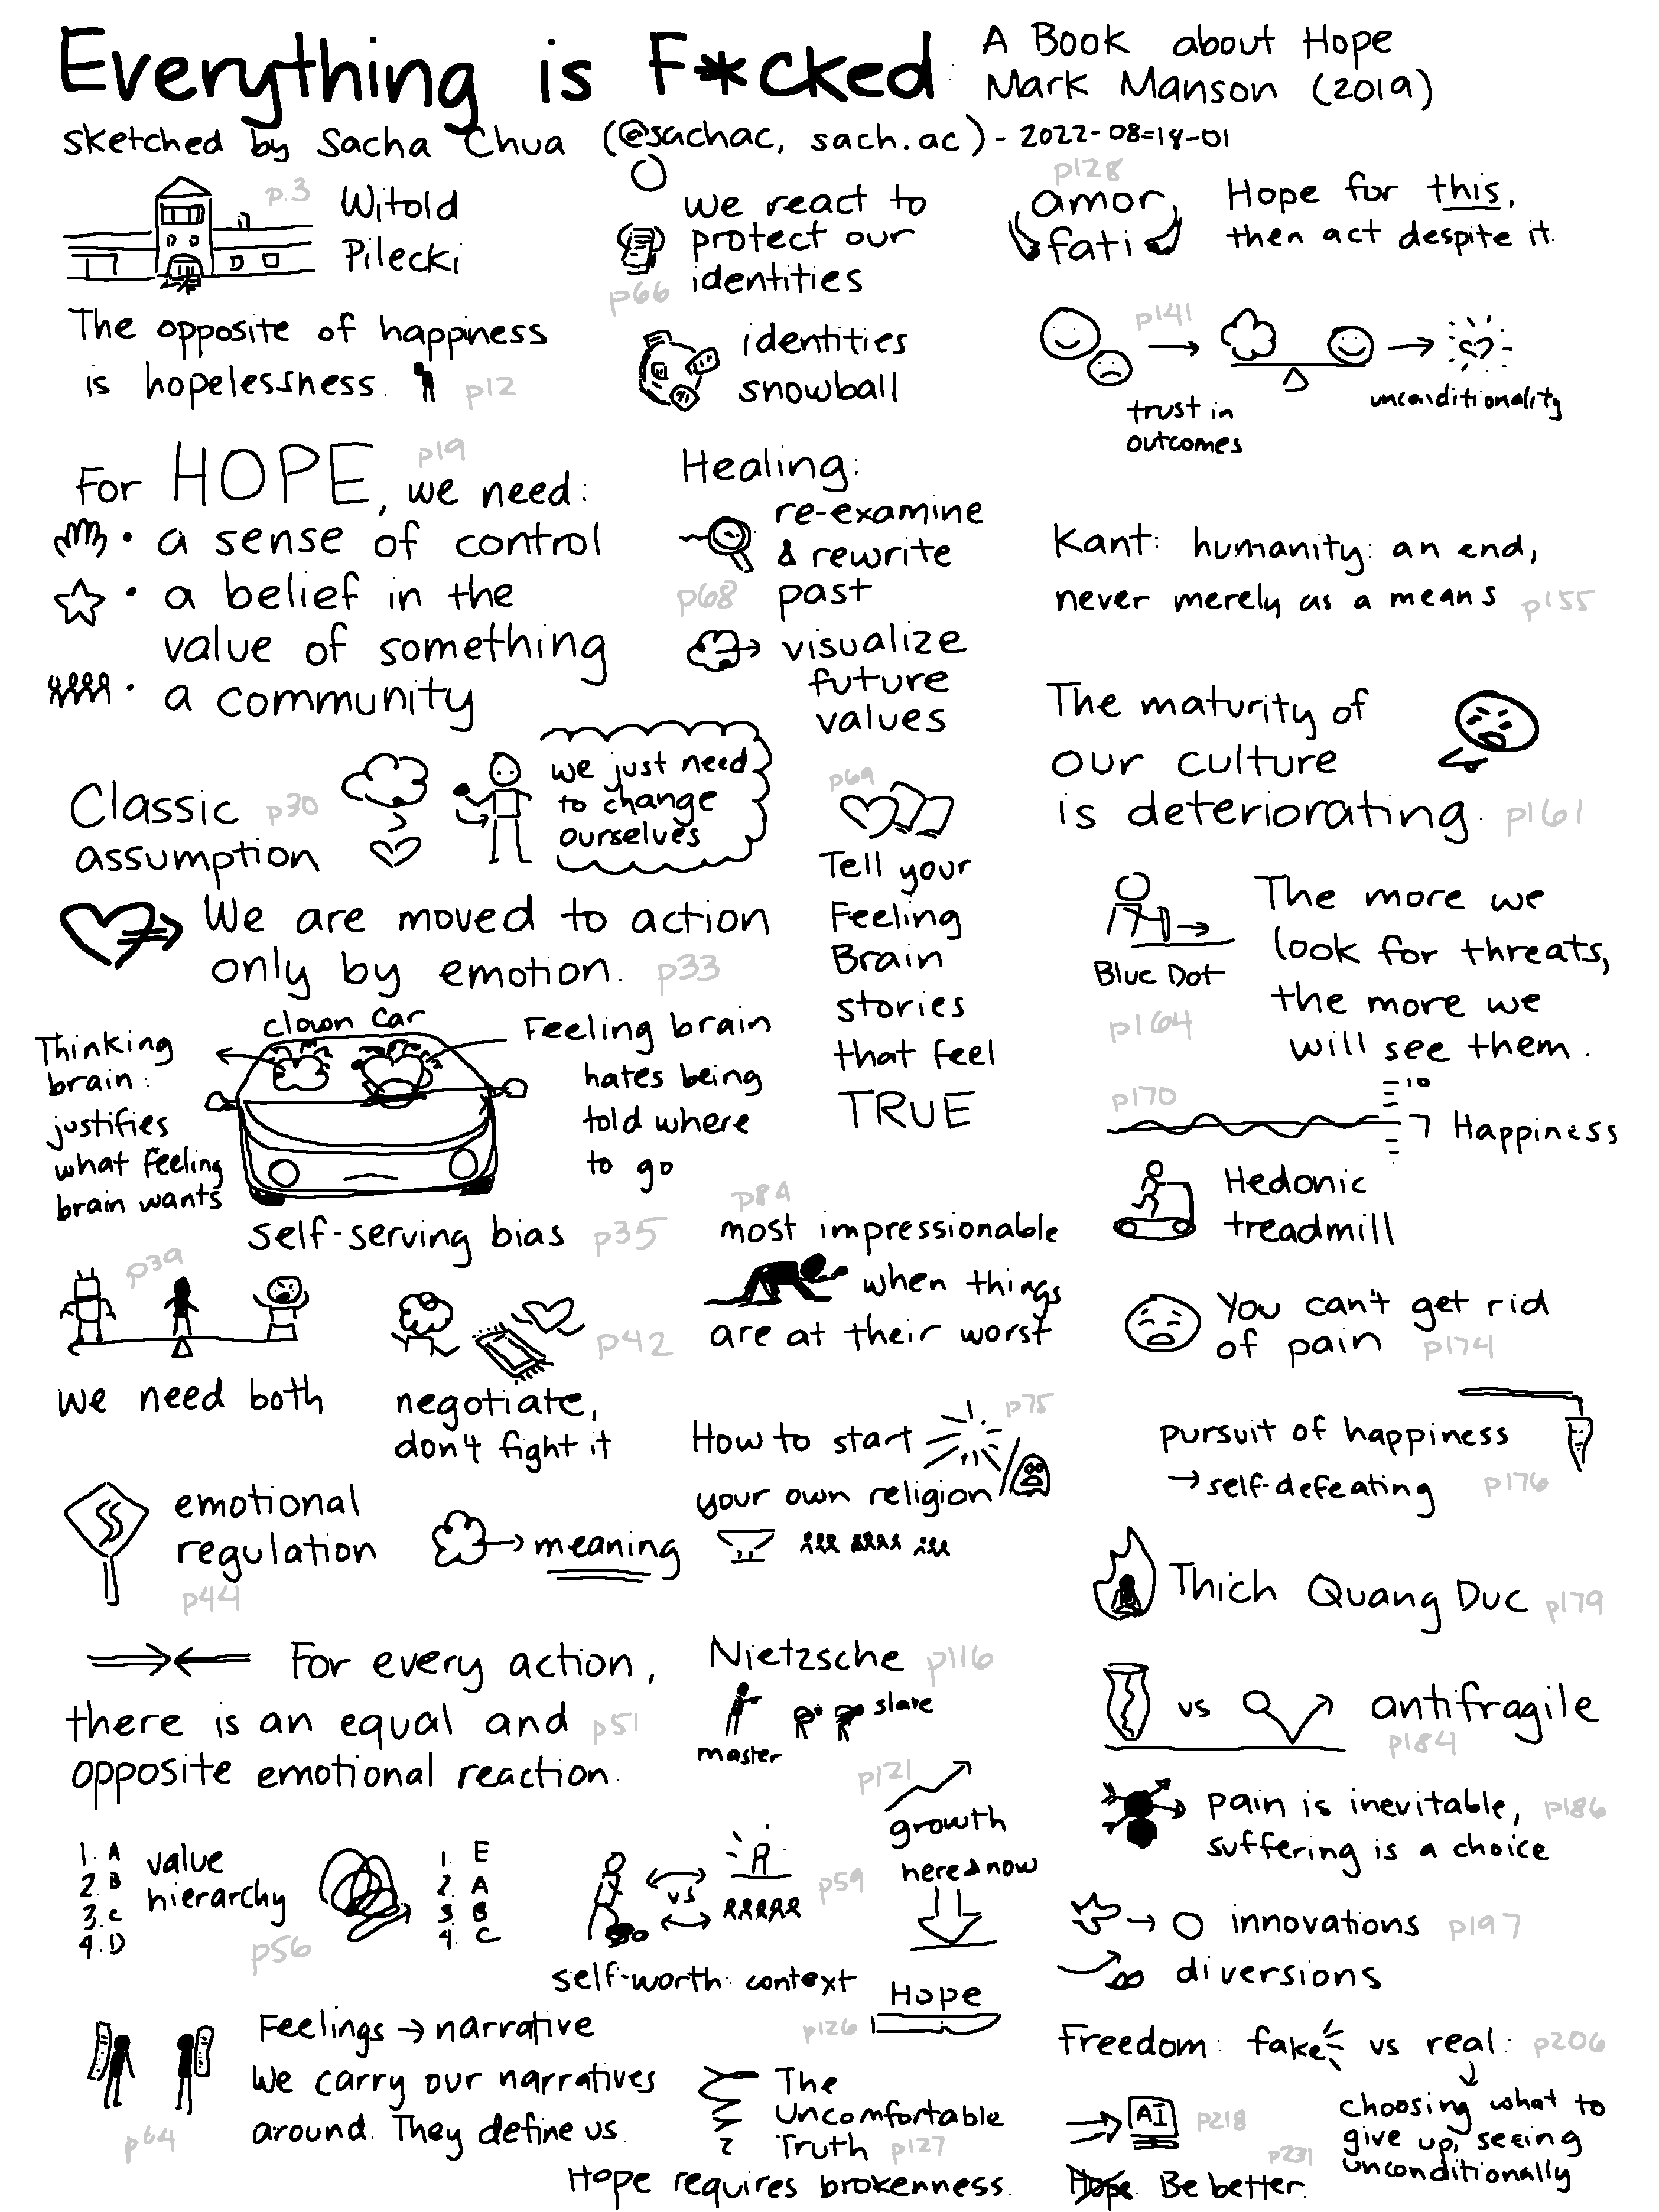 Everything is F*cked
A Book about Hope
Mark Manson (2019)
sketched by Sacha Chua (@sachac, sach.ac) - 2022-08-18-01
p.3
Witold
Pilecki
The opposite of happiness
is hopelessness.
p12
p19
For HOPE, we need:
• a sense of control
• a belief in the
value of something
• a community
Classic
assumption
p30
we just need
to change
ourselves
We are moved to action
only by emotion.
p33
Thinking
brain:
justifies
what feeling
brain wants
clown car
Feeling brain
hates being
told where
to go
self-serving bias
p35
p39
we need both
p42
negotiate,
don't fight it
emotional
regulation
p44
meaning
For every action,
there is an equal and
opposite emotional reaction.
p51
1. A
2. B
3. C
4. D
value
hierarchy
p56
1. E
2. A
3 B
4. C
vs
p59
self-worth: context
Feelings → narrative
We carry our narratives
around. They define us.
p64
we react to
protect our
identities
p66
identities
snowball
Healing:
re-examine
& rewrite
past
p68
visualize
future
values
p69
Tell your
Feeling
Brain
stories
that feel
TRUE
p84
most impressionable
when things
are at their worst
p75
How to start
your own religion
Nietzsche
p116
master
slave
p121
growth
here & now
Hope
p126
The
Uncomfortable
Truth
p127
Hope requires brokenness.
p128
amor
fati
Hope for this,
then act despite it.
p141
trust in
outcomes
unconditionality
Kant: humanity: an end,
never merely as a means
p155
The maturity of
our culture
is deteriorating.
p161
Blue Dot
p164
The more we
look for threats,
the more we
will see them.
p170
10
7 Happiness
Hedonic
treadmill
You can't get rid
of pain
p174
pursuit of happiness
→ self-defeating
p176
Thich Quang Duc
p179
vs
antifragile
p184
pain is inevitable,
suffering is a choice
p186
innovations
p197
diversions
Freedom: fake vs real:
p206
choosing what to
give up, seeing
unconditionally
AI
p218
p231
Hope. Be better.